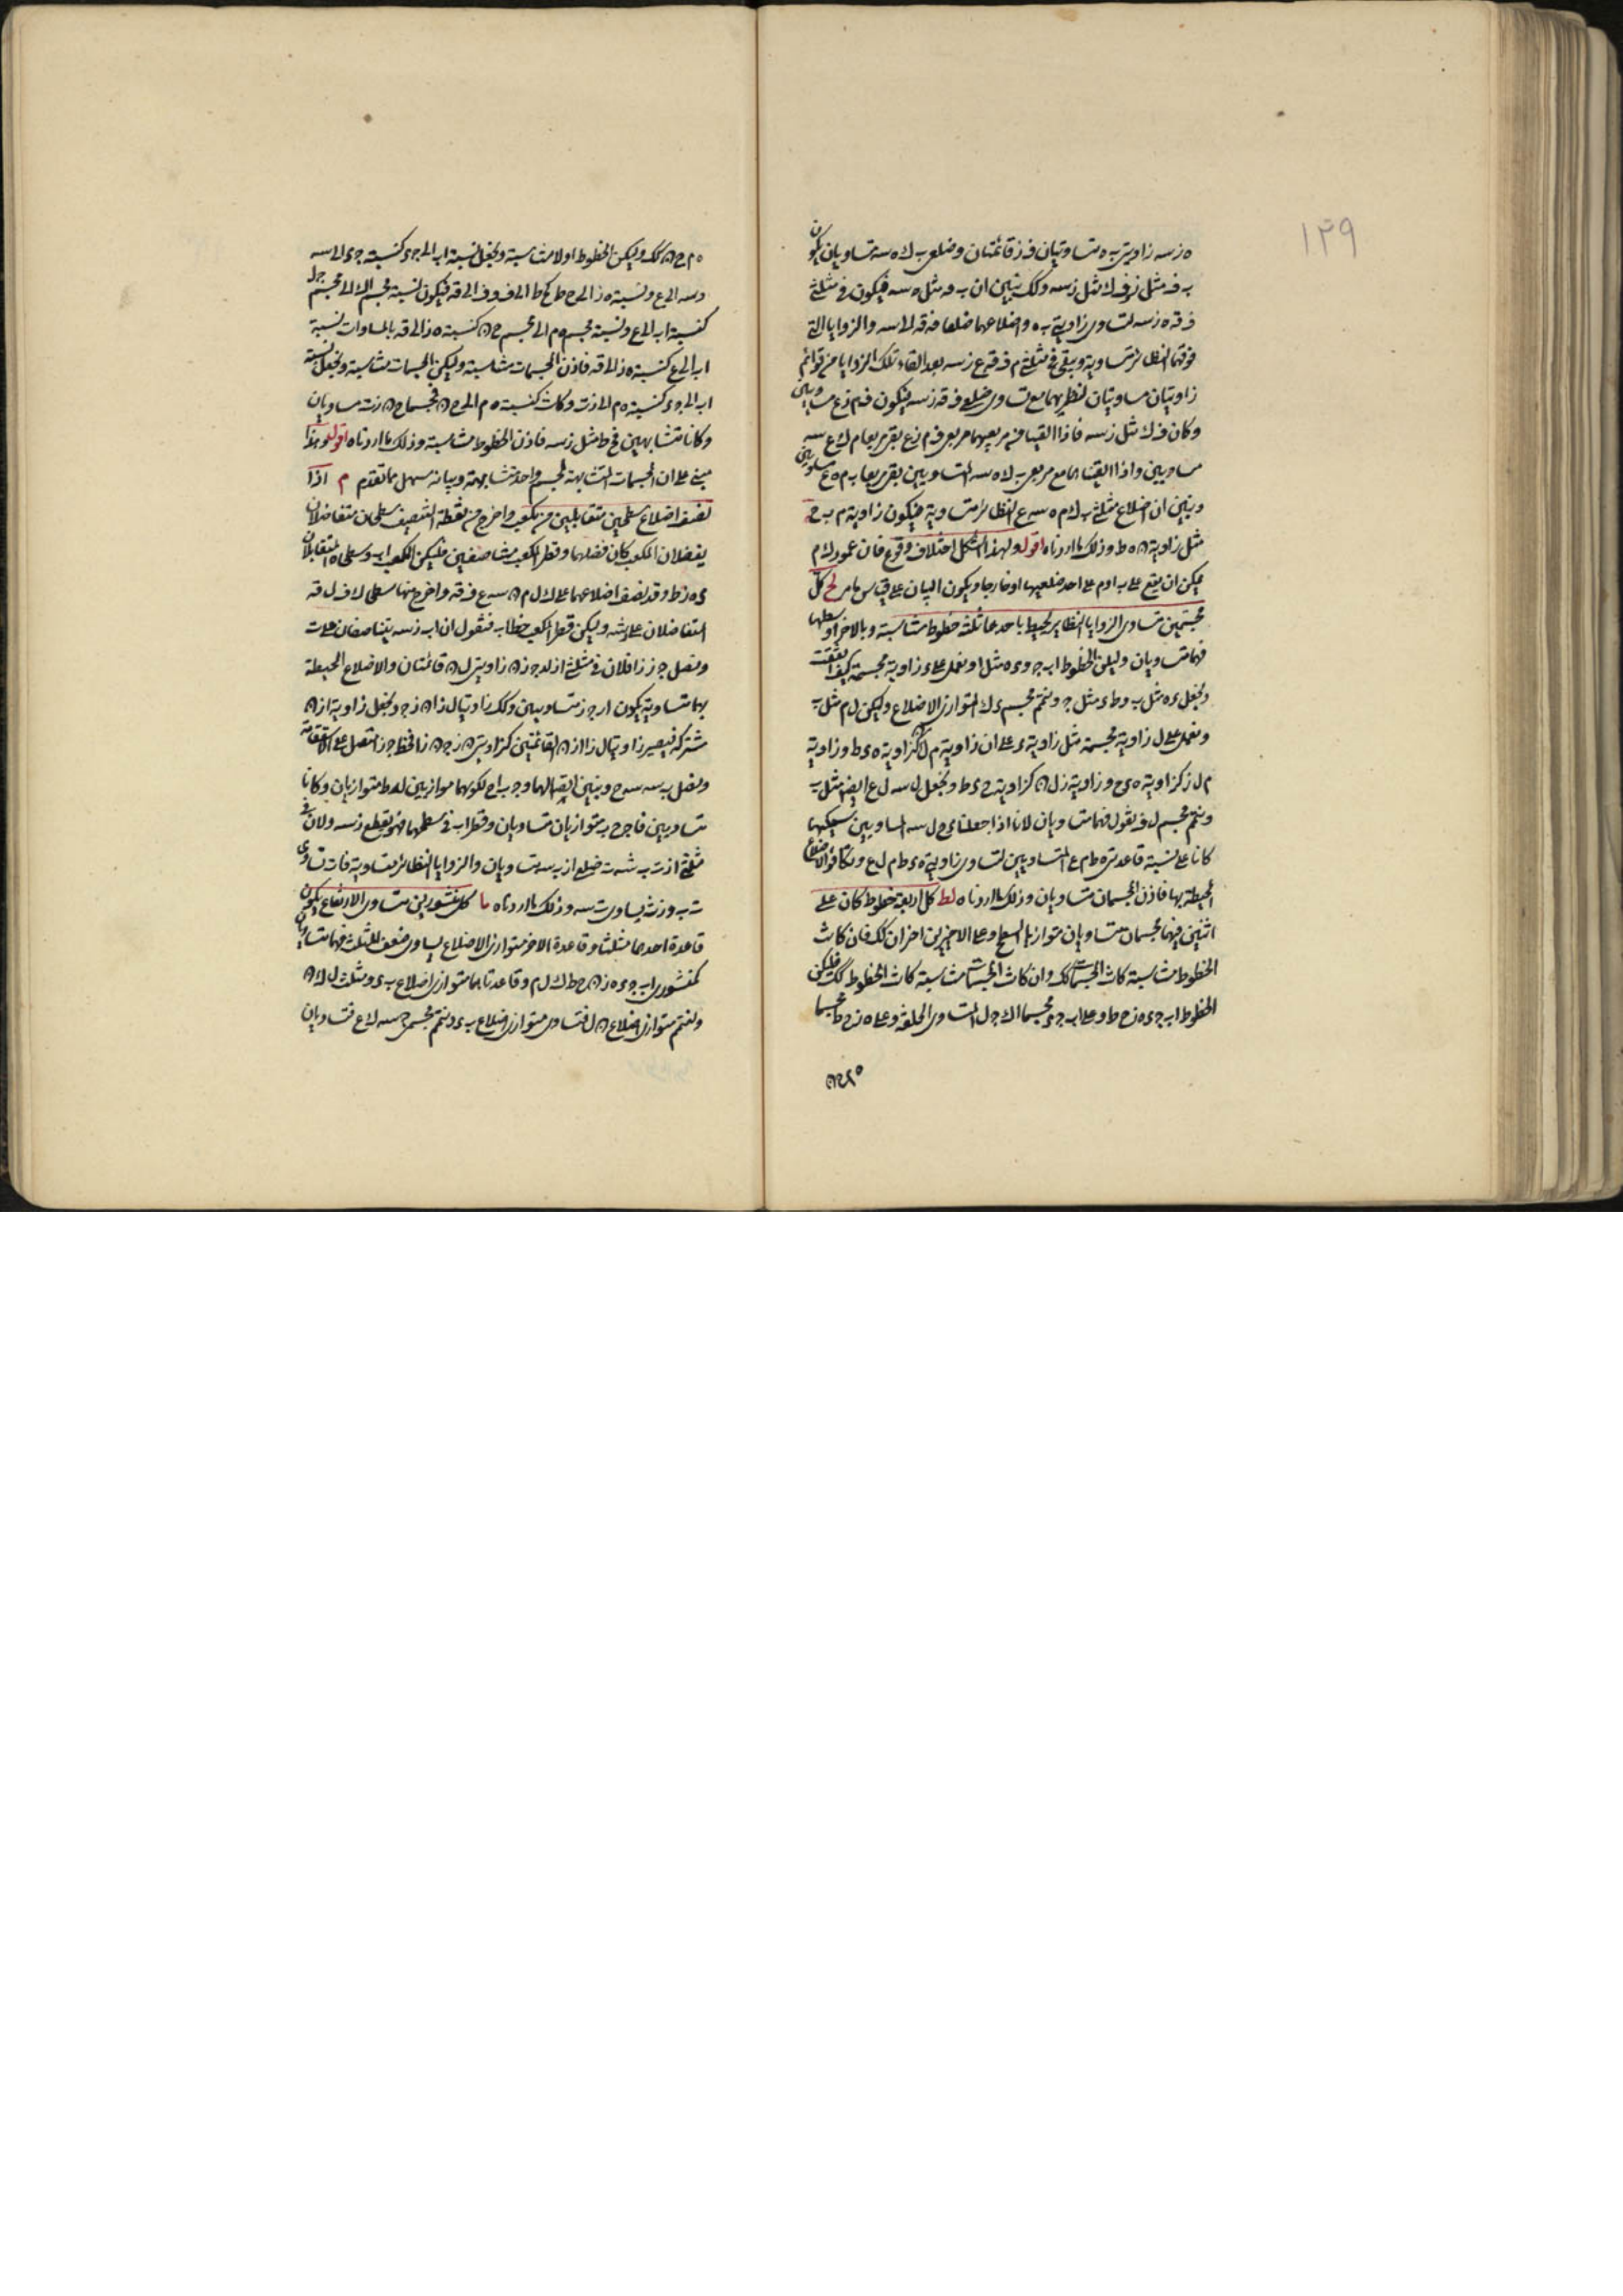 ١٣٩
ه ز سه زاويتى ب ه متساويتان ف ز قائمتان وضلعى ب ك ه سه متساويان يكون
ب ف مثل ز ف ك مثل ز سه وكك يتبين ان ب ف مثل ه سه فيكون فى مثلثى
ف ق ه ز سه لتساوى زاويتى ب ه واضلاعهما ضلعا ف ق ل سه والزوايا التى
فوقهما النظائر متساوية ويبقى فى مثلثى م ف ق ع ز سه بعد القاء تلك الزوايا من قوائم
زاويتان مساويتان لنظيريهما مع تساوى ضلعى ف ق ز سه فيكون ف م ز ع مساويين
وكان ف ك مثل ز سه فاذا القينا من مربعيهما مربعى ف م ز ع بقى مربعا م ك ع سه
مساويين واذا القيناهما مع مربعى ب ك ه سه المتساويين بقى مربعا ب م ه ع مساويين
وتبين ان اضلاع مثلثى ب ك م ه سه ع النظائر متساوية فيكون زاوية م ب ح
مثل زاوية ن ه ط وذلك ما اردناه اقول ولهذا الشكل اختلاف وقوع فان عمود ك م
يمكن ان يقع على ب ا وم على احد ضلعيها او خارجا ويكون البيان على قياس ما مر لح كل
مجسمين متساوى الزوايا النظاير يحيط باحدهما ثلثة خطوط متناسبة وبالاخر اوسطها
فهما متساويان وليكن الخطوط ا ب ج و ى ه مثل ا ونعمل على ى زاوية مجسمة كيف اتفقت
ونجعل ى ه مثل ب و ط ى مثل ج ونتمم مجسم ى ك المتوازى الاضلاع وليكن ل م مثل ب
ونعمل على ل زاوية مجسمة مثل زاوية ى على ان زاوية م ل ن كزاوية ه ى ط وزاوية
م ل ز كزاوية ه ى ح وزاوية ز ل ن كزاوية ح ى ط ونجعل ل سه ل ع ايضا مثل ب
ونتمم مجسم ل ف نقول فهما متساويان لانا اذا جعلنا ى ح ل سه المساويين سمكيهما
كانا على نسبة قاعدتى ه ط م ع المتساويين لتساوى زاويتى ه ى ط م ل ع وتكافؤ الاضلاع
المحيطة بها فاذن المجسمان متساويان وذلك ما اردناه لط كل اربعة خطوط كان على
اثنين منهما مجسمان متساويان متوازيا السطوح وعلى الاخيرين اخران كك فان كانت
الخطوط متناسبة كانت المجسمات كك وان كانت المجسمات متناسبة كانت الخطوط كك فليكن
الخطوط ا ب ج ى ه ز ح ط وعلى ا ب ج ى مجسما ا ك ج ل المتساوى الخلقة وعلى ه ز ح ط مجسما
ه م ح ن
ه م ح ن كك وليكن الخطوط اولا متناسبة ونجعل نسبة ا ب الى ج ى كنسبة ج ى الى سه
وسه الى ع ونسبة ه ز الى ح ط كح ط الى ف وف الى ق فيكون نسبة مجسم ا ك الى مجسم ج ل
كنسبة ا ب الى ع ونسبة مجسم ه م الى مجسم ح ن كنسبة ه ز الى ق وبالمساوات نسبة
ا ب الى ع كنسبة ه ز الى ق فاذن المجسمات متناسبة وليكن المجسمات متناسبة ونجعل نسبة
ا ب الى ج ى كنسبة ه م الى ز ت وكانت كنسبة ه م الى ح ن فمجسما ح ن ز ت مساويان
وكانا متشابهين فح ط مثل ز سه فاذن الخطوط متناسبة وذلك ما اردناه اقول وهذا
مبنى على ان المجسمات المتشابهة لمجسم واحد متشابهة وبيانه سهل مما تقدم م اذا
نصف اضلاع سطحين متقابلين من مكعب واخرج من نقطة التنصيف سطحان متفاضلان
يفصلان المكعب كان فصلهما وقطر المكعب متناصفين فليكن المكعب ا ب وسطحى ا ه المتقابلان
ى ه ز ط وقد نصف اضلاعهما على ك ل م ن سه ع ف ق واخرج منها سطحى ك ف ل ق
المتفاضلان على ر ش وليكن قطر المكعب خط ا ب فنقول ان ا ب ز سه يتناصفان على ت
ونصل ج ز ز ا فلان فى مثلثى ا ز ل ج ز ن زاويتى ل ن قائمتان والاضلاع المحيطة
بهما متساوية يكون ا ز ج ز متساويين وكك زاويتا ل ز ا ن ز ج ونجعل زاوية ا ز ن
مشتركة فيصير زاويتا ل ز ا ا ز ن القائمتين كزاويتى ن ز ج ن ز ا فخط ج ز اتصل على الاستقامة
ونصل ب سه سه ح ونبين اتصالهما و ج ب ا ح لكونهما موازيين لى ط متوازيان وكانا
متساويين فا ج ح ب متوازيان متساويان وقطر ا ب فى سطحهما فهو يقطع ز سه ولان فى
مثلثى ا ز ت ب ش ت ضلعى ا ز ب سه متساويان والزوايا النظائر متساوية فا ت تساوى
ت ب و ز ت يساوى ت سه وذلك ما اردناه ما كل منشورين متساوى الارتفاع يكون
قاعدة احدهما مثلثا وقاعدة الاخر متوازى الاضلاع يساوى ضعف المثلث فهما متساويان
كمنشورى ا ب ج ى ه ز ن ح ط ك ل م وقاعدتاهما متوازى اضلاع ب ى ومثلث ل ك ن
ولنتمم متوازى اضلاع ن ل فتساوى متوازى اضلاع ب ى ونتمم مجسمى ج سه ك ع فتساويان